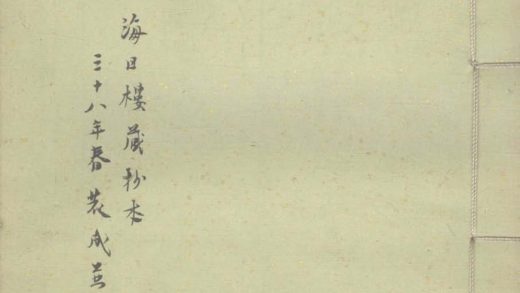 海日樓藏抄本
三十八年春裝成並